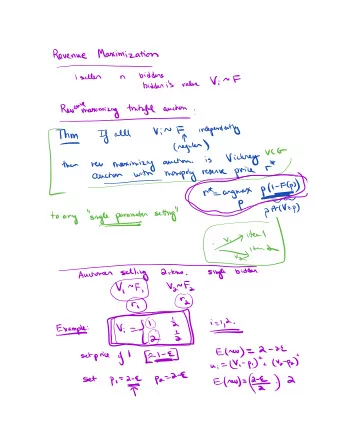 Revenue Maximization
1 seller n bidders
bidder i's value Vi ~ F
Revenue maximizing truthful auction.
Thm If all Vi ~ F independently
(regular)
then rev maximizing auction is Vickrey VCG
auction with monopoly reserve price r*
r* = argmax p(1-F(p))
p
p Pr(V≥p)
to any "single parameter setting"
V1 → item 1
V2 → item 2
Auctioneer selling 2 items. single bidder
V1 ~ F1 V2 ~ F2
r1 r2
Example: Vi = { 1 1/2 i=1,2.
2 1/2
set price of 1 2-2ε
E(rev) = 2-2ε
ui = (V1-p1)+ + (V2-p2)+
set p1 = 2-ε p2 = 2-ε E(rev) = (2-ε / 2) 2